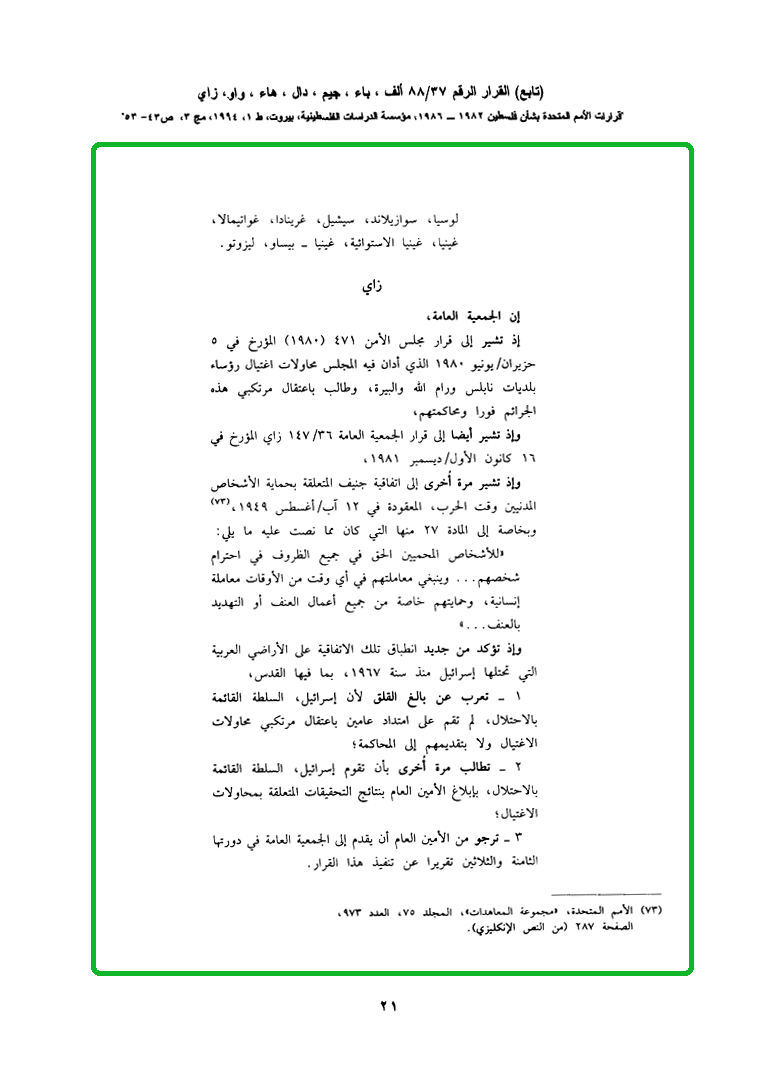 (تابع) القرار الرقم ٨٨/٣٧ ألف ، باء ، جيم ، دال ، هاء ، واو، زاي
"قرارات الأمم المتحدة بشأن فلسطين ١٩٨٢ ــ ١٩٨٦، مؤسسة الدراسات الفلسطينية، بيروت، ط ١، ١٩٩٤، مج ٣، ص٤٣- ٥٣"
لوسيا، سوازيلاند، سيشيل، غرينادا، غواتيمالا،
غينيا، غينيا الاستوائية، غينيا ــ بيساو، ليزوتو.
زاي
إن الجمعية العامة،
إذ تشير إلى قرار مجلس الأمن ٤٧١ (١٩٨٠) المؤرخ في ٥
حزيران/يونيو ١٩٨٠ الذي أدان فيه المجلس محاولات اغتيال رؤساء
بلديات نابلس ورام الله والبيرة، وطالب باعتقال مرتكبي هذه
الجرائم فورا ومحاكمتهم،
وإذ تشير أيضا إلى قرار الجمعية العامة ١٤٧/٣٦ زاي المؤرخ في
١٦ كانون الأول/ديسمبر ١٩٨١،
وإذ تشير مرة أخرى إلى اتفاقية جنيف المتعلقة بحماية الأشخاص
المدنيين وقت الحرب، المعقودة في ١٢ آب/أغسطس ١٩٤٩،(٧٣)
وبخاصة إلى المادة ٢٧ منها التي كان مما نصت عليه ما يلي:
«للأشخاص المحميين الحق في جميع الظروف في احترام
شخصهم... وينبغي معاملتهم في أي وقت من الأوقات معاملة
إنسانية، وحمايتهم خاصة من جميع أعمال العنف أو التهديد
بالعنف...»
وإذ تؤكد من جديد انطباق تلك الاتفاقية على الأراضي العربية
التي تحتلها إسرائيل منذ سنة ١٩٦٧، بما فيها القدس،
١ ــ تعرب عن بالغ القلق لأن إسرائيل، السلطة القائمة
بالاحتلال، لم تقم على امتداد عامين باعتقال مرتكبي محاولات
الاغتيال ولا بتقديمهم إلى المحاكمة؛
٢ ــ تطالب مرة أخرى بأن تقوم إسرائيل، السلطة القائمة
بالاحتلال، بإبلاغ الأمين العام بنتائج التحقيقات المتعلقة بمحاولات
الاغتيال؛
٣ ــ ترجو من الأمين العام أن يقدم إلى الجمعية العامة في دورتها
الثامنة والثلاثين تقريرا عن تنفيذ هذا القرار.
(٧٣) الأمم المتحدة، «مجموعة المعاهدات»، المجلد ٧٥، العدد ٩٧٣،
الصفحة ٢٨٧ (من النص الإنكليزي).
٢١